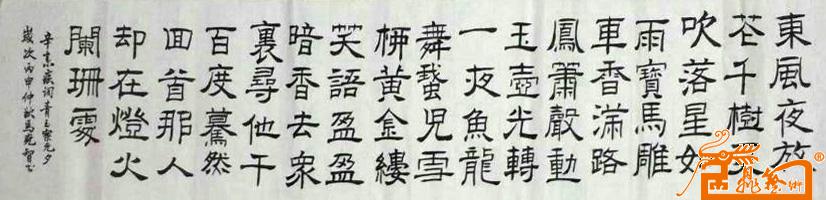 東風夜放
花千樹更
吹落星如
雨寶馬雕
車香滿路
鳳簫聲動
玉壺光轉
一夜魚龍
舞蛾兒雪
柳黃金縷
笑語盈盈
暗香去衆
裏尋他千
百度驀然
回首那人
却在燈火
闌珊處
辛棄疾詞青玉案元夕
歲次丙申仲秋馬